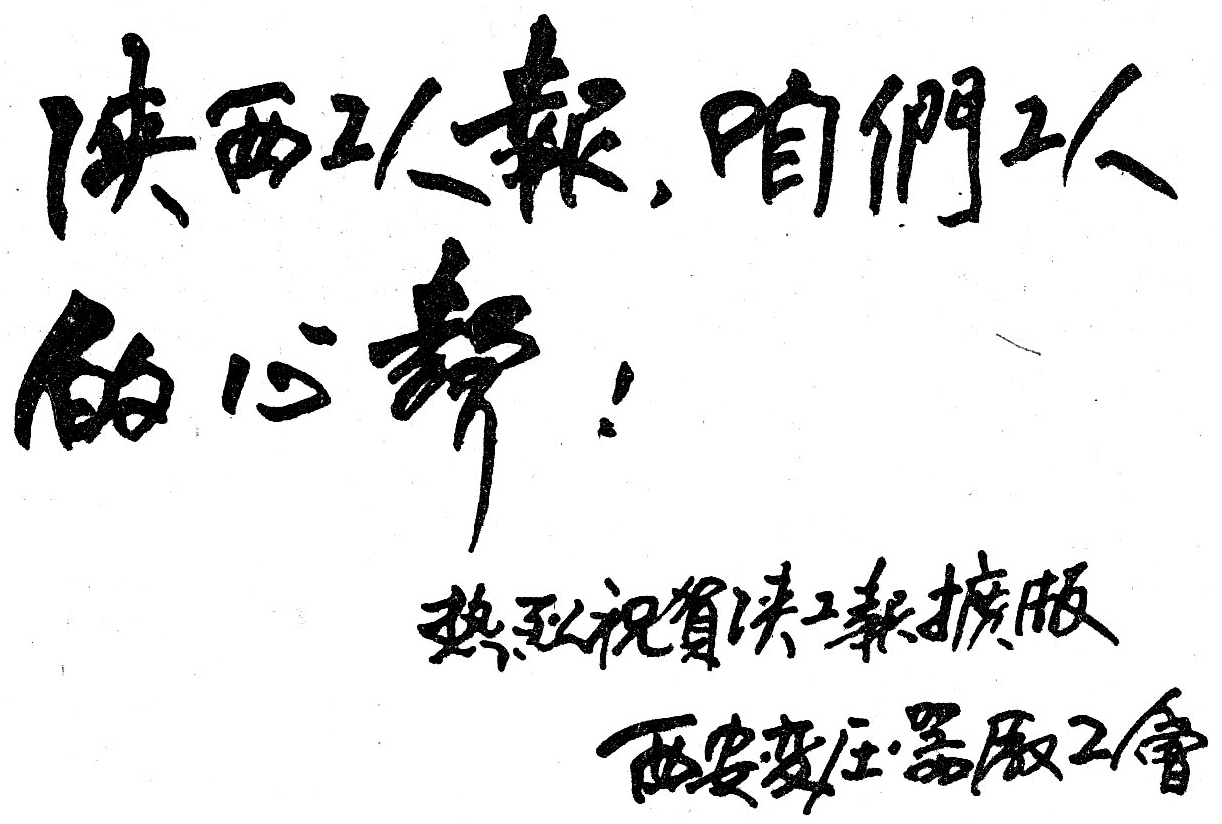 陕西工人報，咱們工人
的心聲！
热烈祝賀陕工報擴版
西安变压器厰工會